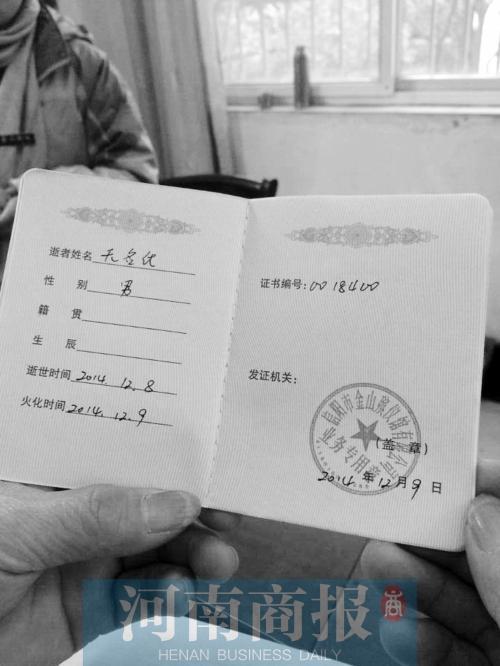 逝者姓名 无名
性 别 男
籍 贯
生 辰
逝世时间 2014.12.8
火化时间 2014.12.9
证书编号: 0018400
发证机关:
信阳市金山殡仪馆有限公司
业务专用章
(盖 章)
2014 年 12 月 9 日
河南商报
HENAN BUSINESS DAILY